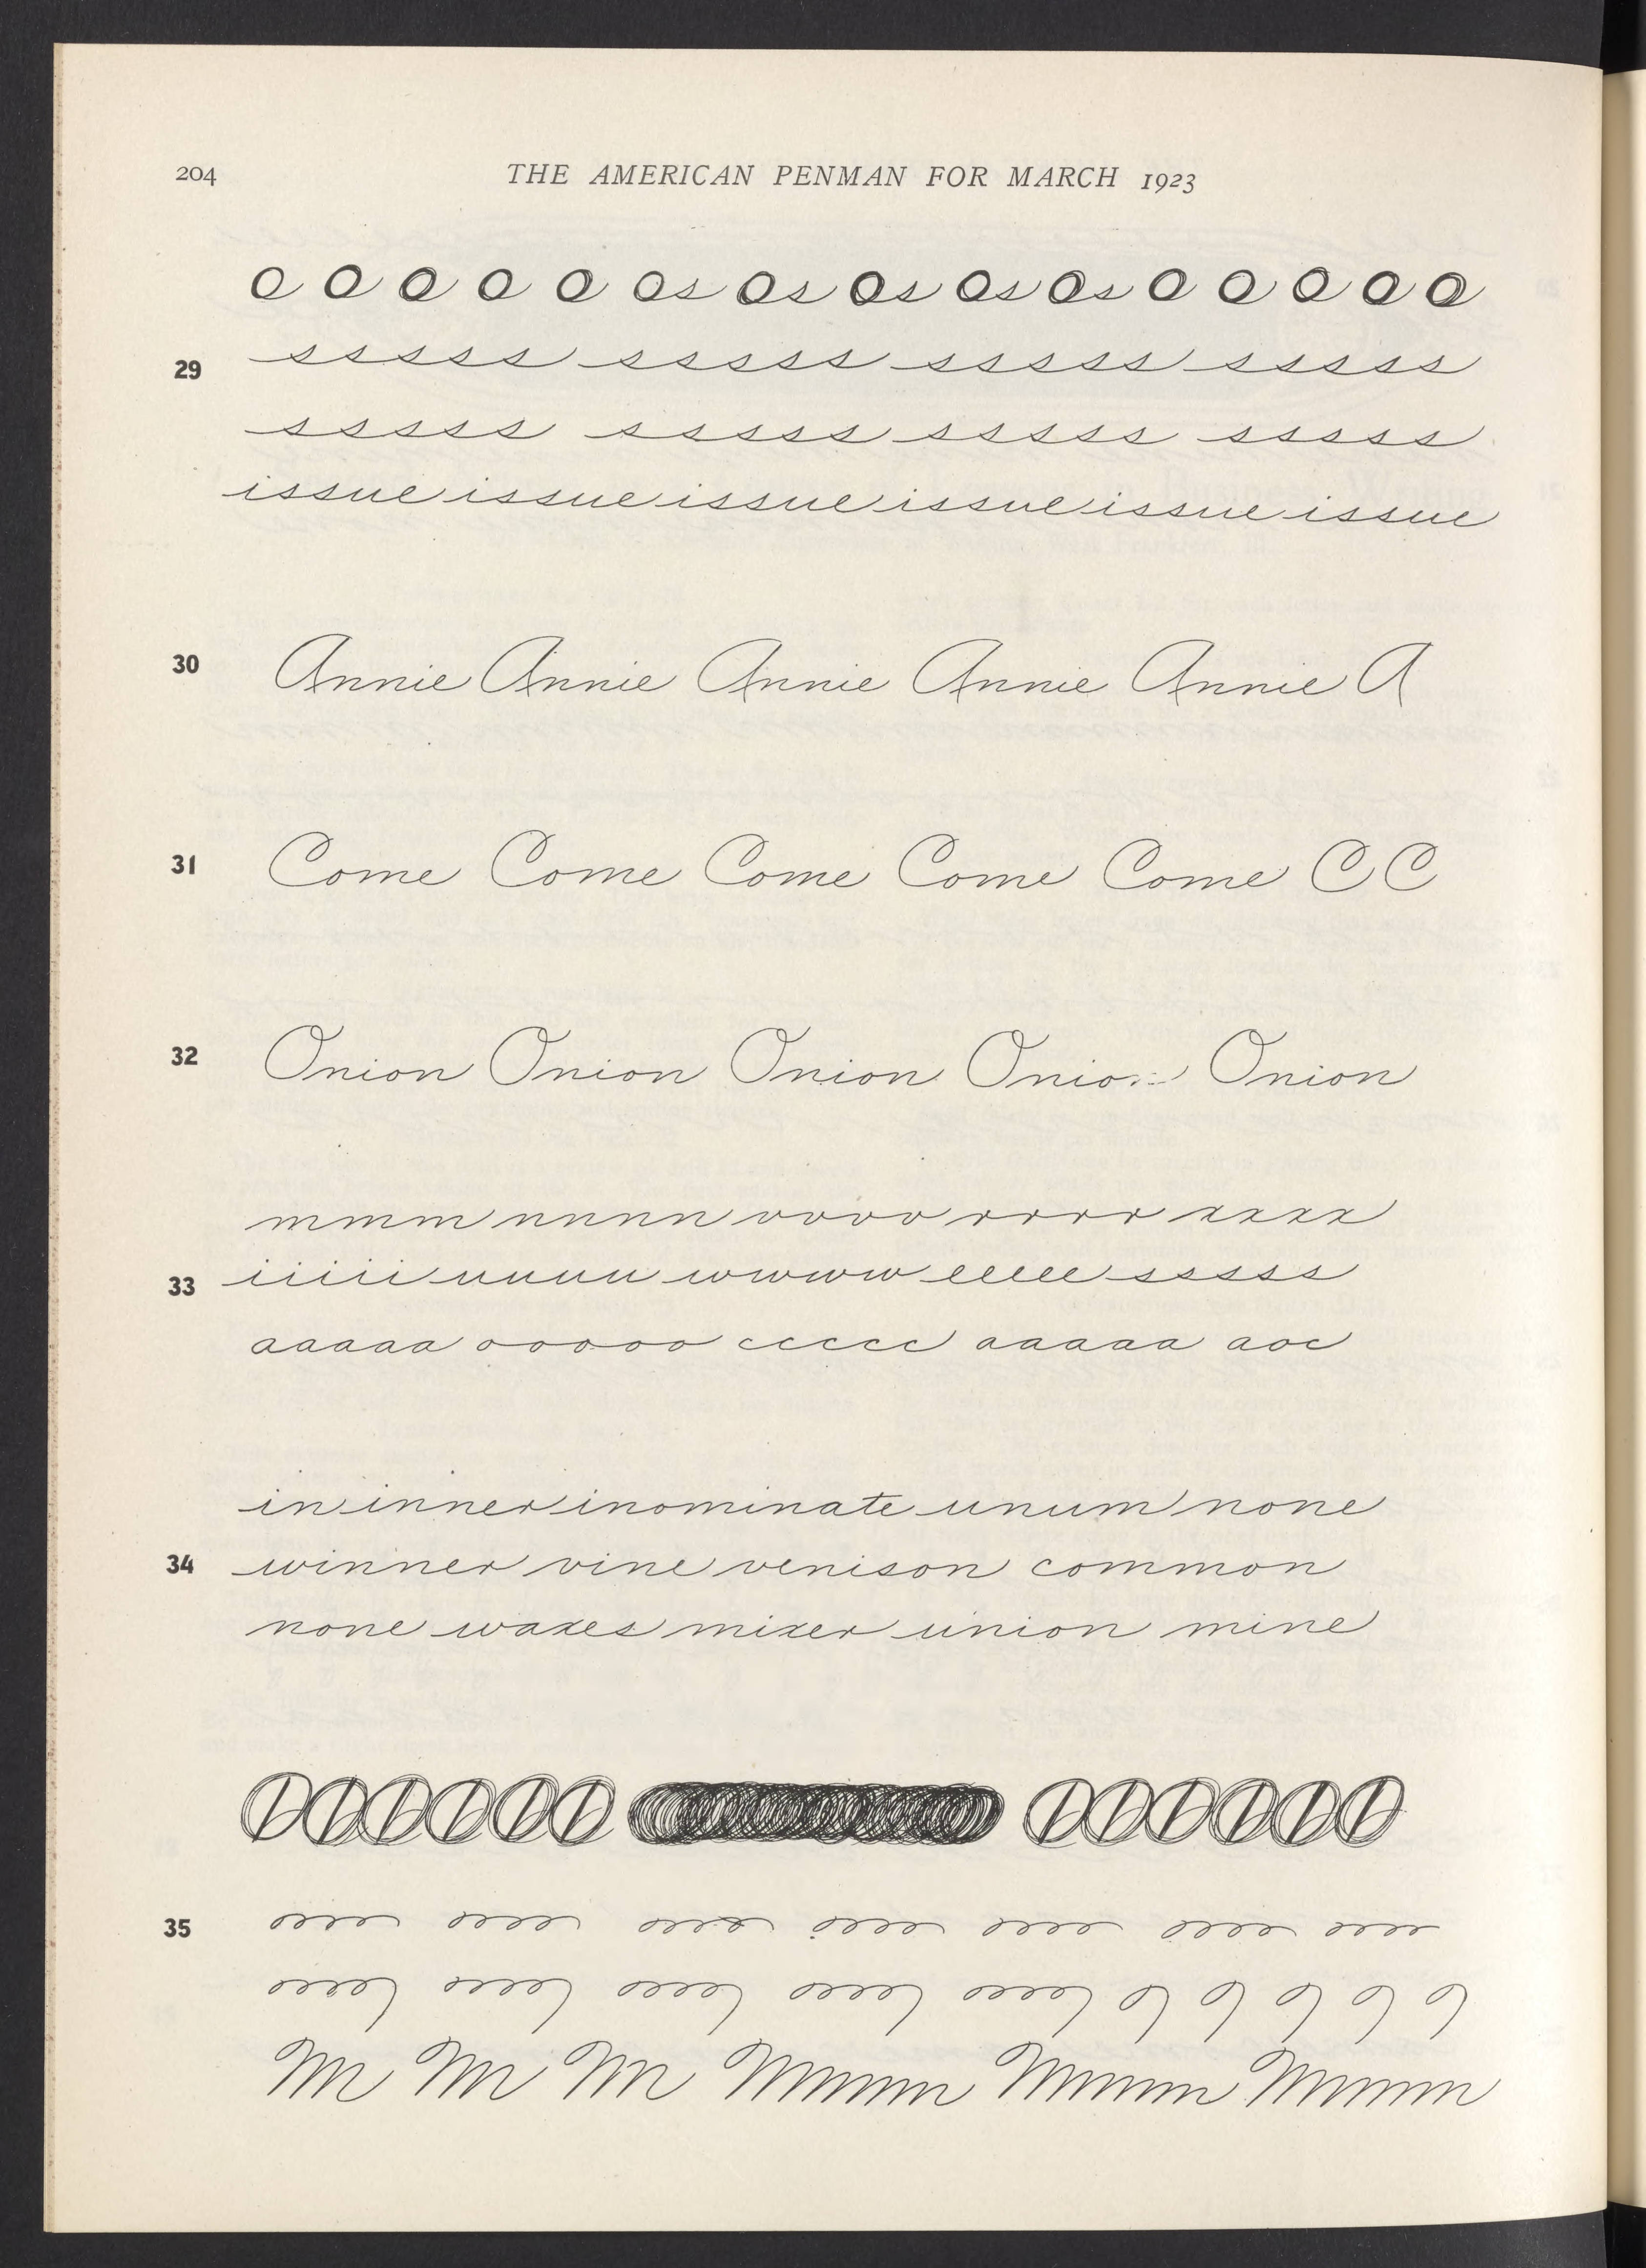 204 THE AMERICAN PENMAN FOR MARCH 1923
o o o o o os os os os os o o o o o
29 sssss sssss sssss sssss
sssss sssss sssss sssss
issue issue issue issue issue issue
30 Annie Annie Annie Annie Annie A
31 Come Come Come Come Come C C
32 Onion Onion Onion Onion Onion
mmm nnnn vvvv rrrr xxxx
33 iiiii uuuu wwww eeeee sssss
aaaaa ooooo ccccc aaaaa aoc
in inner inominate unum none
34 winner vine venison common
none waxes mixer union mine
35
M M M Mmmm Mmmm Mmmm